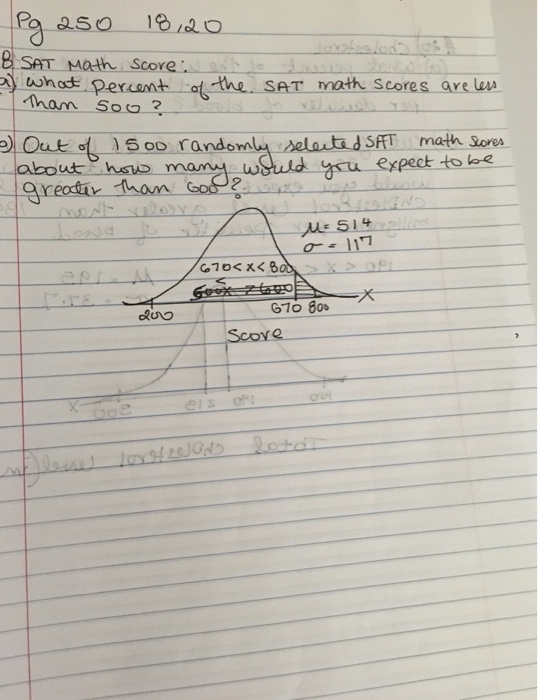 Pg 250 18,20
8 SAT Math Score:
a) What Percent of the SAT math scores are less
than 500?
b) Out of 1500 randomly selected SAT math scores
about how many would you expect to be
greater than 600?
μ = 514
σ = 117
670 < x < 800
200 670 800 X
Score